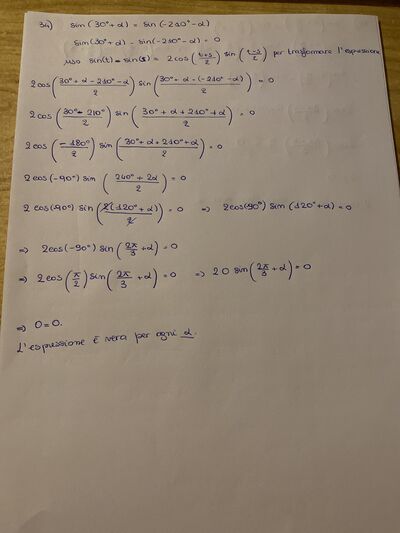 34) sin(30°+α) = sin(-210°-α)
sin(30°+α) - sin(-210°-α) = 0
uso sin(t)-sin(s) = 2cos((t+s)/2) sin((t-s)/2) per trasformare l'espressione
2cos((30°+α-210°-α)/2) sin((30°+α-(-210°-α))/2) = 0
2cos((30°-210°)/2) sin((30°+α+210°+α)/2) = 0
2cos((-180°)/2) sin((30°+α+210°+α)/2) = 0
2cos(-90°) sin((240°+2α)/2) = 0
2cos(-90°) sin((2(120°+α))/2) = 0 ⇒ 2cos(90°) sin(120°+α) = 0
⇒ 2cos(-90°) sin(2π/3+α) = 0
⇒ 2cos(π/2) sin(2π/3+α) = 0 ⇒ 2 0 sin(2π/3+α) = 0
⇒ 0=0.
L'espressione è vera per ogni α.